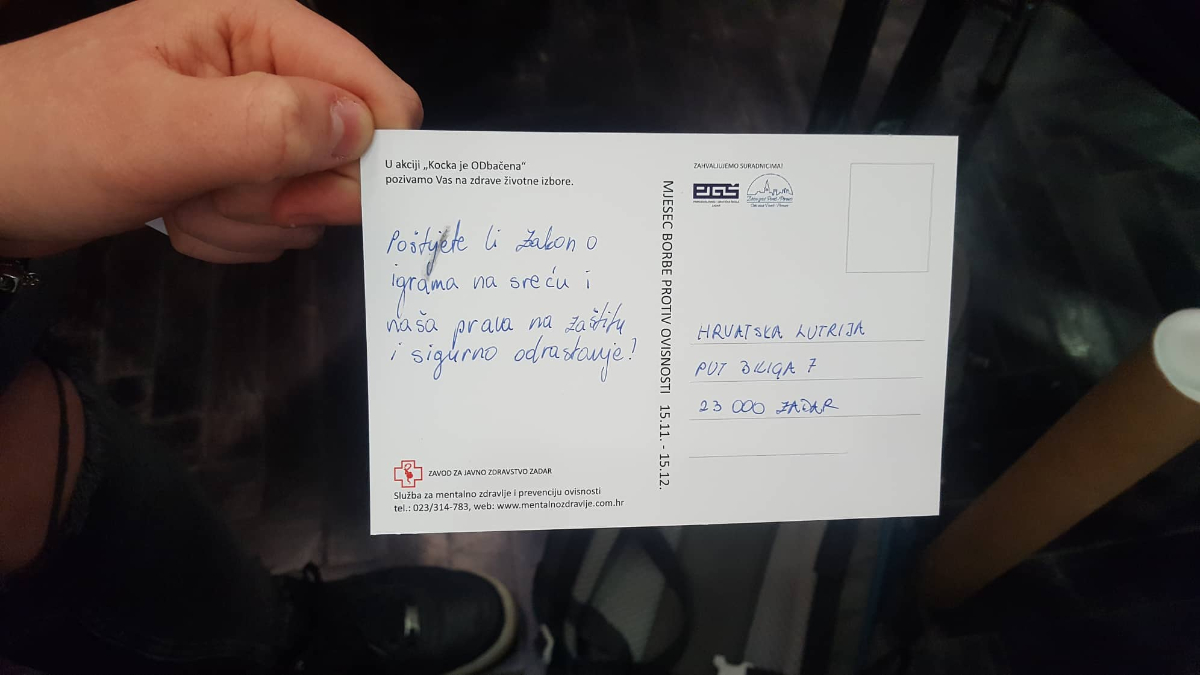 U akciji „Kocka je ODbačena“
pozivamo Vas na zdrave životne izbore.
Poštujete li zakon o
igrama na sreću i
naša prava na zaštitu
i sigurno odrastanje?
ZAVOD ZA JAVNO ZDRAVSTVO ZADAR
Služba za mentalno zdravlje i prevenciju ovisnosti
tel.: 023/314-783, web: www.mentalnozdravlje.com.hr
MJESEC BORBE PROTIV OVISNOSTI 15.11. - 15.12.
ZAHVALJUJEMO SURADNICIMA!
HRVATSKA LUTRIJA
PUT BILIGA 7
23 000 ZADAR